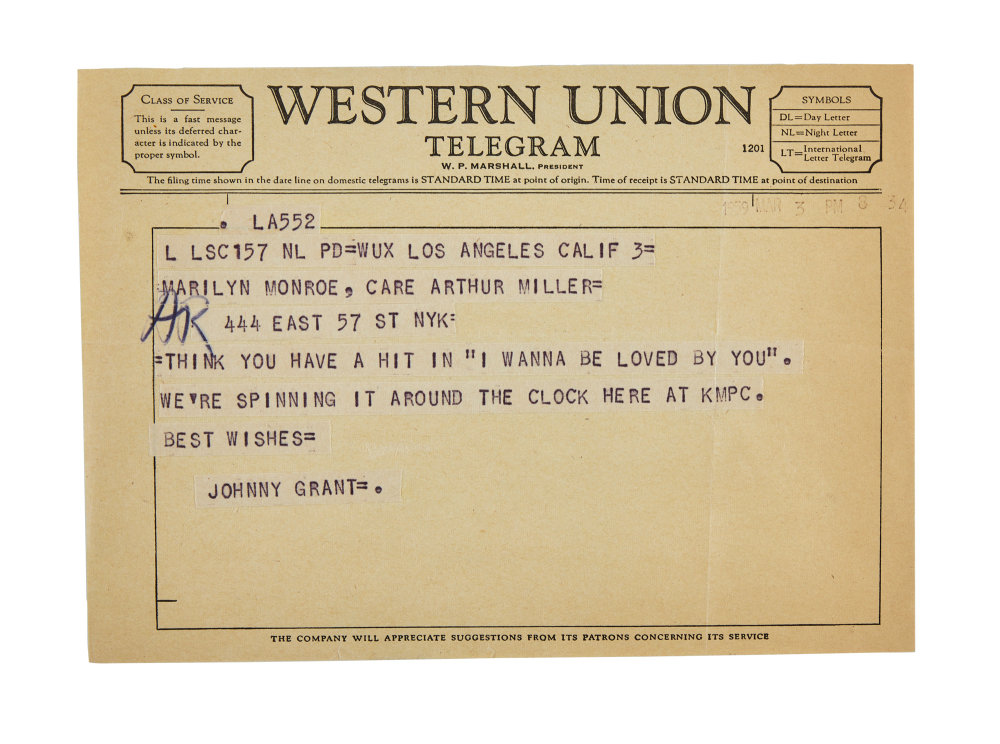 CLASS OF SERVICE
This is a fast message
unless its deferred char-
acter is indicated by the
proper symbol.
WESTERN UNION
TELEGRAM
W. P. MARSHALL, PRESIDENT
1201
SYMBOLS
DL=Day Letter
NL=Night Letter
LT=International Letter Telegram
The filing time shown in the date line on domestic telegrams is STANDARD TIME at point of origin. Time of receipt is STANDARD TIME at point of destination
1959 MAR 3 PM 8 34
. LA552
L LSC157 NL PD=WUX LOS ANGELES CALIF 3=
MARILYN MONROE, CARE ARTHUR MILLER=
AR 444 EAST 57 ST NYK=
=THINK YOU HAVE A HIT IN "I WANNA BE LOVED BY YOU".
WE'RE SPINNING IT AROUND THE CLOCK HERE AT KMPC.
BEST WISHES=
JOHNNY GRANT=.
THE COMPANY WILL APPRECIATE SUGGESTIONS FROM ITS PATRONS CONCERNING ITS SERVICE